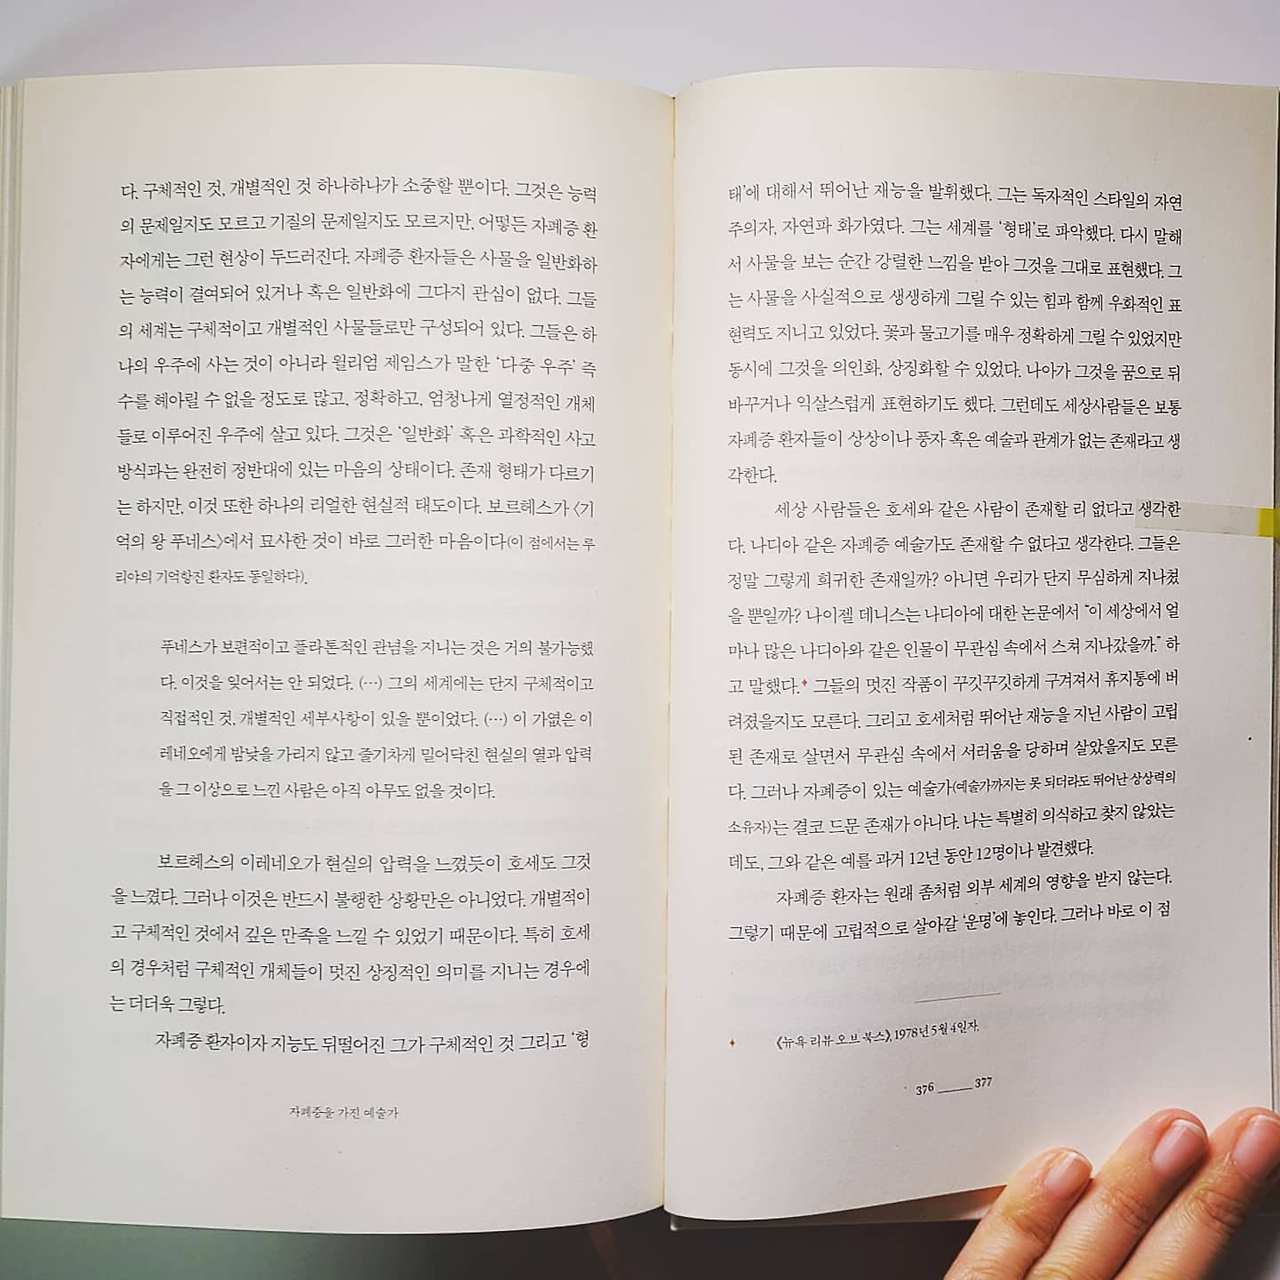 다. 구체적인 것, 개별적인 것 하나하나가 소중할 뿐이다. 그것은 능력
의 문제일지도 모르고 기질의 문제일지도 모르지만, 어떻든 자폐증 환
자에게는 그런 현상이 두드러진다. 자폐증 환자들은 사물을 일반화하
는 능력이 결여되어 있거나 혹은 일반화에 그다지 관심이 없다. 그들
의 세계는 구체적이고 개별적인 사물들로만 구성되어 있다. 그들은 하
나의 우주에 사는 것이 아니라 윌리엄 제임스가 말한 ‘다중 우주’ 즉
수를 헤아릴 수 없을 정도로 많고, 정확하고, 엄청나게 열정적인 개체
들로 이루어진 우주에 살고 있다. 그것은 ‘일반화’ 혹은 과학적인 사고
방식과는 완전히 정반대에 있는 마음의 상태이다. 존재 형태가 다르기
는 하지만, 이것 또한 하나의 리얼한 현실적 태도이다. 보르헤스가 〈기
억의 왕 푸네스〉에서 묘사한 것이 바로 그러한 마음이다(이 점에서는 루
리야의 기억항진 환자도 동일하다).
푸네스가 보편적이고 플라톤적인 관념을 지니는 것은 거의 불가능했
다. 이것을 잊어서는 안 되었다. (…) 그의 세계에는 단지 구체적이고
직접적인 것, 개별적인 세부사항이 있을 뿐이었다. (…) 이 가엾은 이
레네오에게 밤낮을 가리지 않고 줄기차게 밀어닥친 현실의 열과 압력
을 그 이상으로 느낀 사람은 아직 아무도 없을 것이다.
보르헤스의 이레네오가 현실의 압력을 느꼈듯이 호세도 그것
을 느꼈다. 그러나 이것은 반드시 불행한 상황만은 아니었다. 개별적이
고 구체적인 것에서 깊은 만족을 느낄 수 있었기 때문이다. 특히 호세
의 경우처럼 구체적인 개체들이 멋진 상징적인 의미를 지니는 경우에
는 더더욱 그렇다.
자폐증 환자이자 지능도 뒤떨어진 그가 구체적인 것 그리고 ‘형
자폐증을 가진 예술가
태’에 대해서 뛰어난 재능을 발휘했다. 그는 독자적인 스타일의 자연
주의자, 자연파 화가였다. 그는 세계를 ‘형태’로 파악했다. 다시 말해
서 사물을 보는 순간 강렬한 느낌을 받아 그것을 그대로 표현했다. 그
는 사물을 사실적으로 생생하게 그릴 수 있는 힘과 함께 우화적인 표
현력도 지니고 있었다. 꽃과 물고기를 매우 정확하게 그릴 수 있었지만
동시에 그것을 의인화, 상징화할 수 있었다. 나아가 그것을 꿈으로 뒤
바꾸거나 익살스럽게 표현하기도 했다. 그런데도 세상사람들은 보통
자폐증 환자들이 상상이나 풍자 혹은 예술과 관계가 없는 존재라고 생
각한다.
세상 사람들은 호세와 같은 사람이 존재할 리 없다고 생각한
다. 나디아 같은 자폐증 예술가도 존재할 수 없다고 생각한다. 그들은
정말 그렇게 희귀한 존재일까? 아니면 우리가 단지 무심하게 지나쳤
을 뿐일까? 나이젤 데니스는 나디아에 대한 논문에서 “이 세상에서 얼
마나 많은 나디아와 같은 인물이 무관심 속에서 스쳐 지나갔을까.” 하
고 말했다.✦ 그들의 멋진 작품이 꾸깃꾸깃하게 구겨져서 휴지통에 버
려졌을지도 모른다. 그리고 호세처럼 뛰어난 재능을 지닌 사람이 고립
된 존재로 살면서 무관심 속에서 서러움을 당하며 살았을지도 모른
다. 그러나 자폐증이 있는 예술가(예술가까지는 못 되더라도 뛰어난 상상력의
소유자)는 결코 드문 존재가 아니다. 나는 특별히 의식하고 찾지 않았는
데도, 그와 같은 예를 과거 12년 동안 12명이나 발견했다.
자폐증 환자는 원래 좀처럼 외부 세계의 영향을 받지 않는다.
그렇기 때문에 고립적으로 살아갈 ‘운명’에 놓인다. 그러나 바로 이 점
✦ 《뉴욕 리뷰 오브 북스》, 1978년 5월 4일자.
376 ____ 377